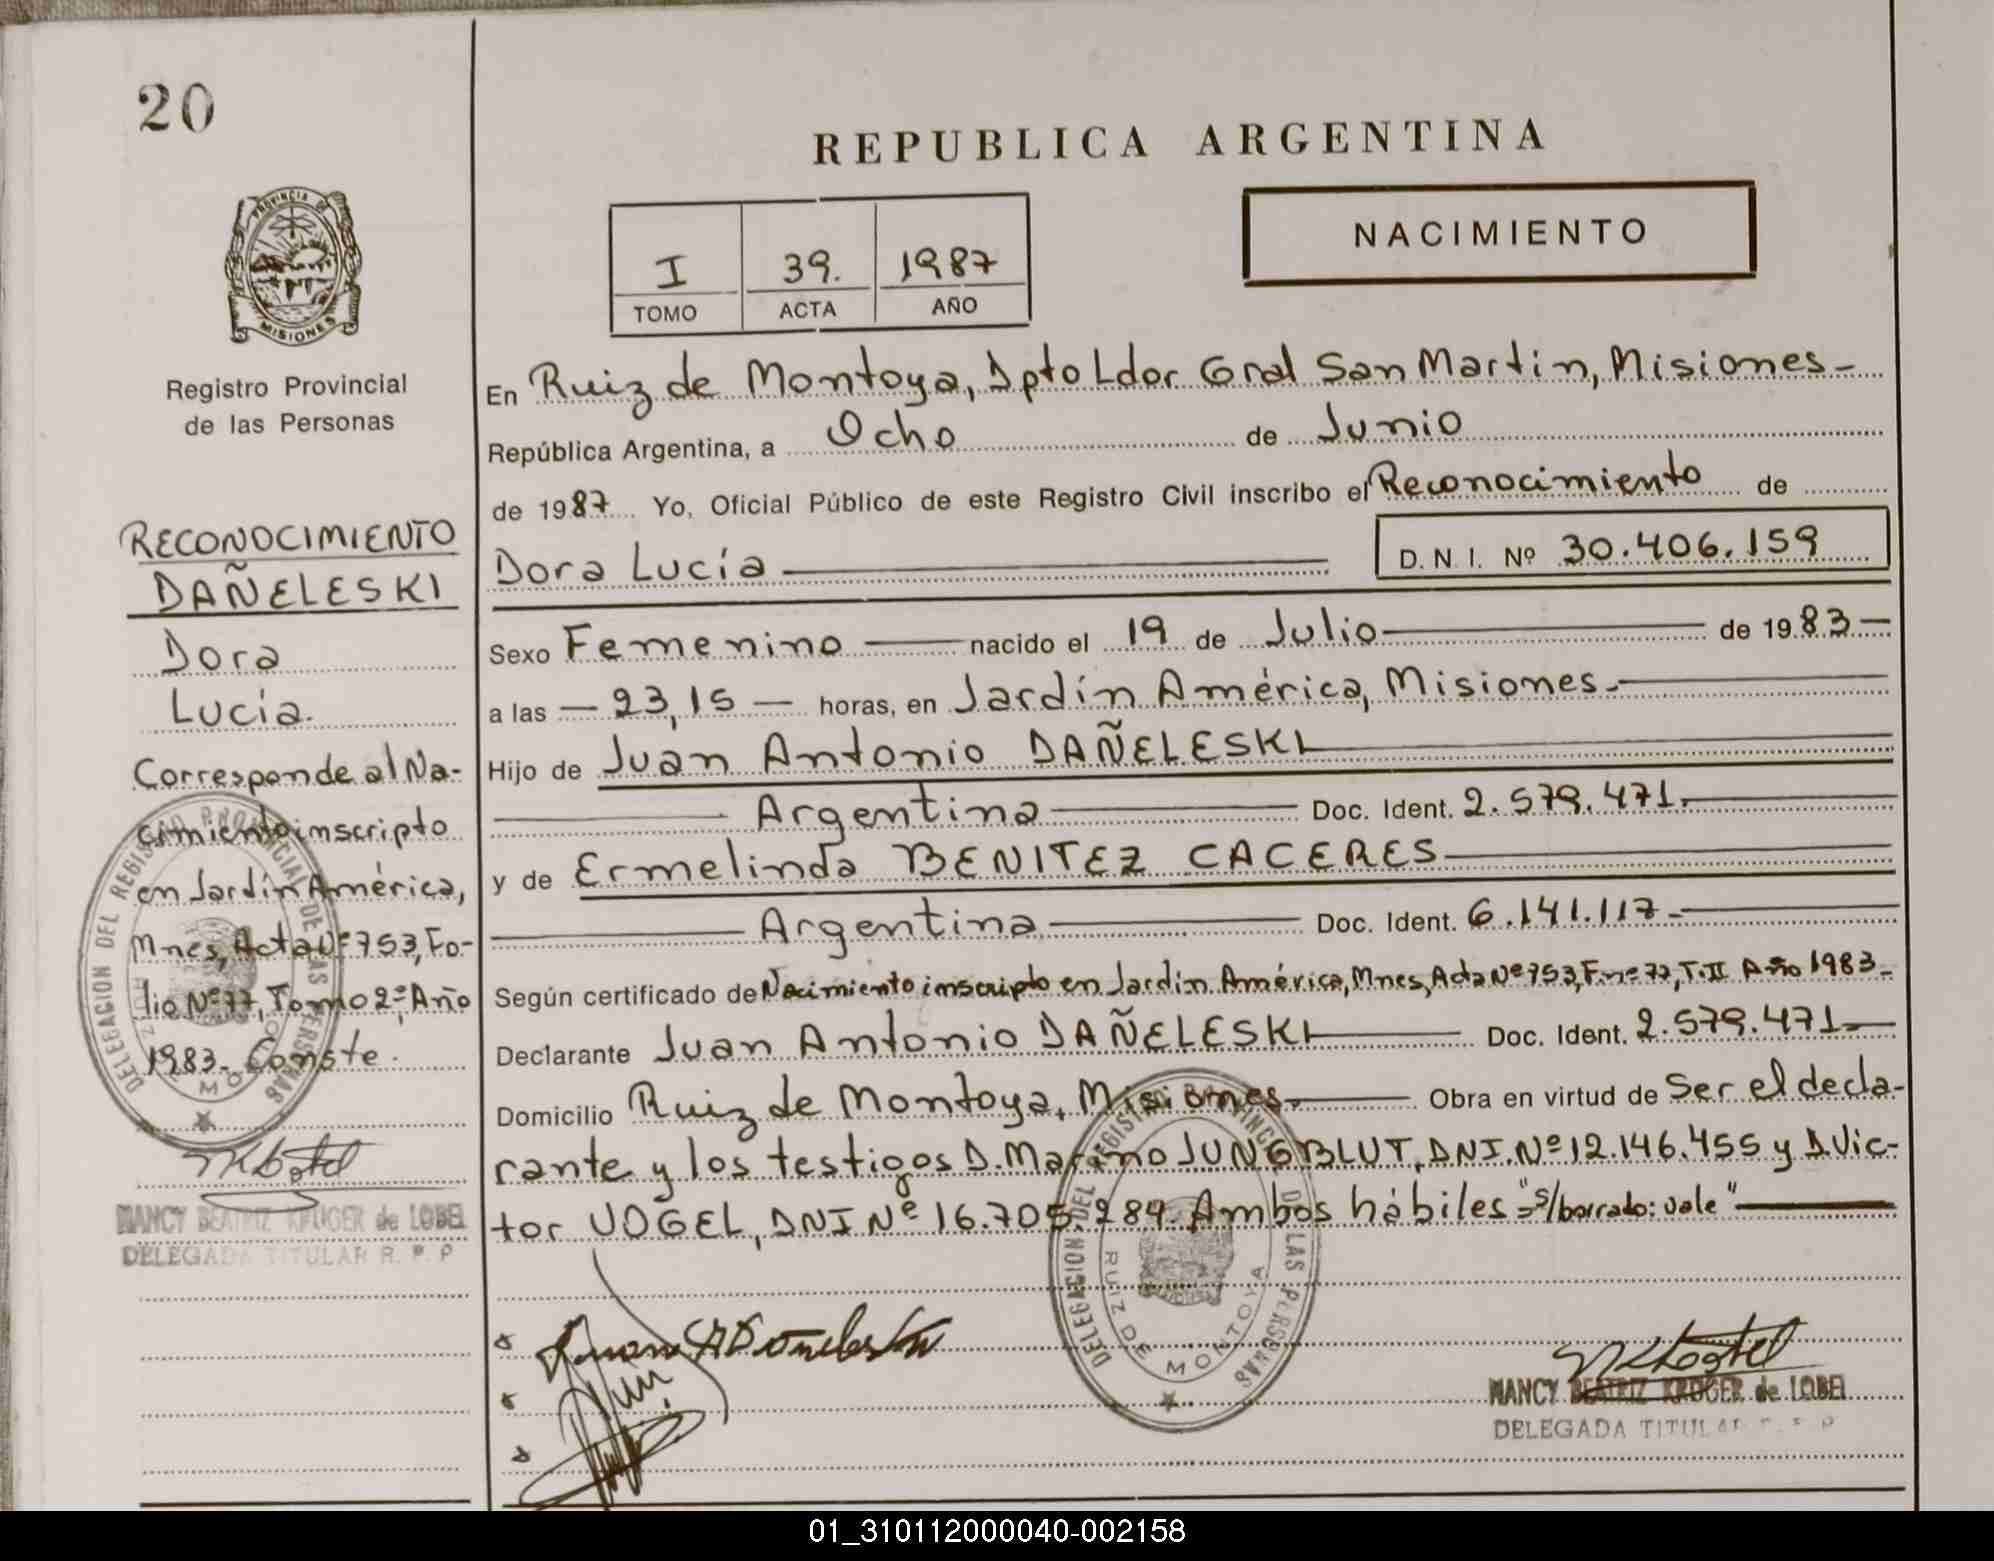 20
PROVINCIA DE
MISIONES
Registro Provincial
de las Personas
RECONOCIMIENTO
DAÑELESKI
Dora
Lucía.
Corresponde al Na-
cimiento inscripto
en Jardín América,
Mnes, Acta Nº 753, Fo-
lio Nº 77, Tomo 2º, Año
1983.- Conste.
DELEGACION DEL REGISTRO PROVINCIAL DE LAS PERSONAS
RUIZ DE MONTOYA
NANCY BEATRIZ KRUGER de LOBEL
DELEGADA TITULAR R. P. P
REPUBLICA ARGENTINA
NACIMIENTO
I 39. 1987
TOMO ACTA AÑO
En Ruiz de Montoya, Dpto Ldor Gral San Martin, Misiones-
República Argentina, a Ocho de Junio
de 1987 Yo, Oficial Público de este Registro Civil inscribo el Reconocimiento de
Dora Lucía D. N. I. Nº 30.406.159
Sexo Femenino nacido el 19 de Julio de 1983-
a las - 23,15 - horas, en Jardín América, Misiones.-
Hijo de Juan Antonio DAÑELESKI
Argentina Doc. Ident. 2.579.471.-
y de Ermelinda BENITEZ CACERES
Argentina Doc. Ident. 6.141.117.-
Según certificado de Nacimiento inscripto en Jardín América, Mnes, Acta Nº 753, F. nº 77, T. II Año 1983-
Declarante Juan Antonio DAÑELESKI Doc. Ident. 2.579.471.-
Domicilio Ruiz de Montoya, Misiones.- Obra en virtud de Ser el decla-
rante y los testigos D. Marino JUNGBLUT, DNI. Nº 12.146.455 y D. Vic-
tor VOGEL, DNI Nº 16.705.289. Ambos hábiles "=s/borrado: vale"
DELEGACION DEL REGISTRO PROVINCIAL DE LAS PERSONAS
RUIZ DE MONTOYA
NANCY BEATRIZ KRUGER de LOBEL
DELEGADA TITULAR R. P. P
01_310112000040-002158